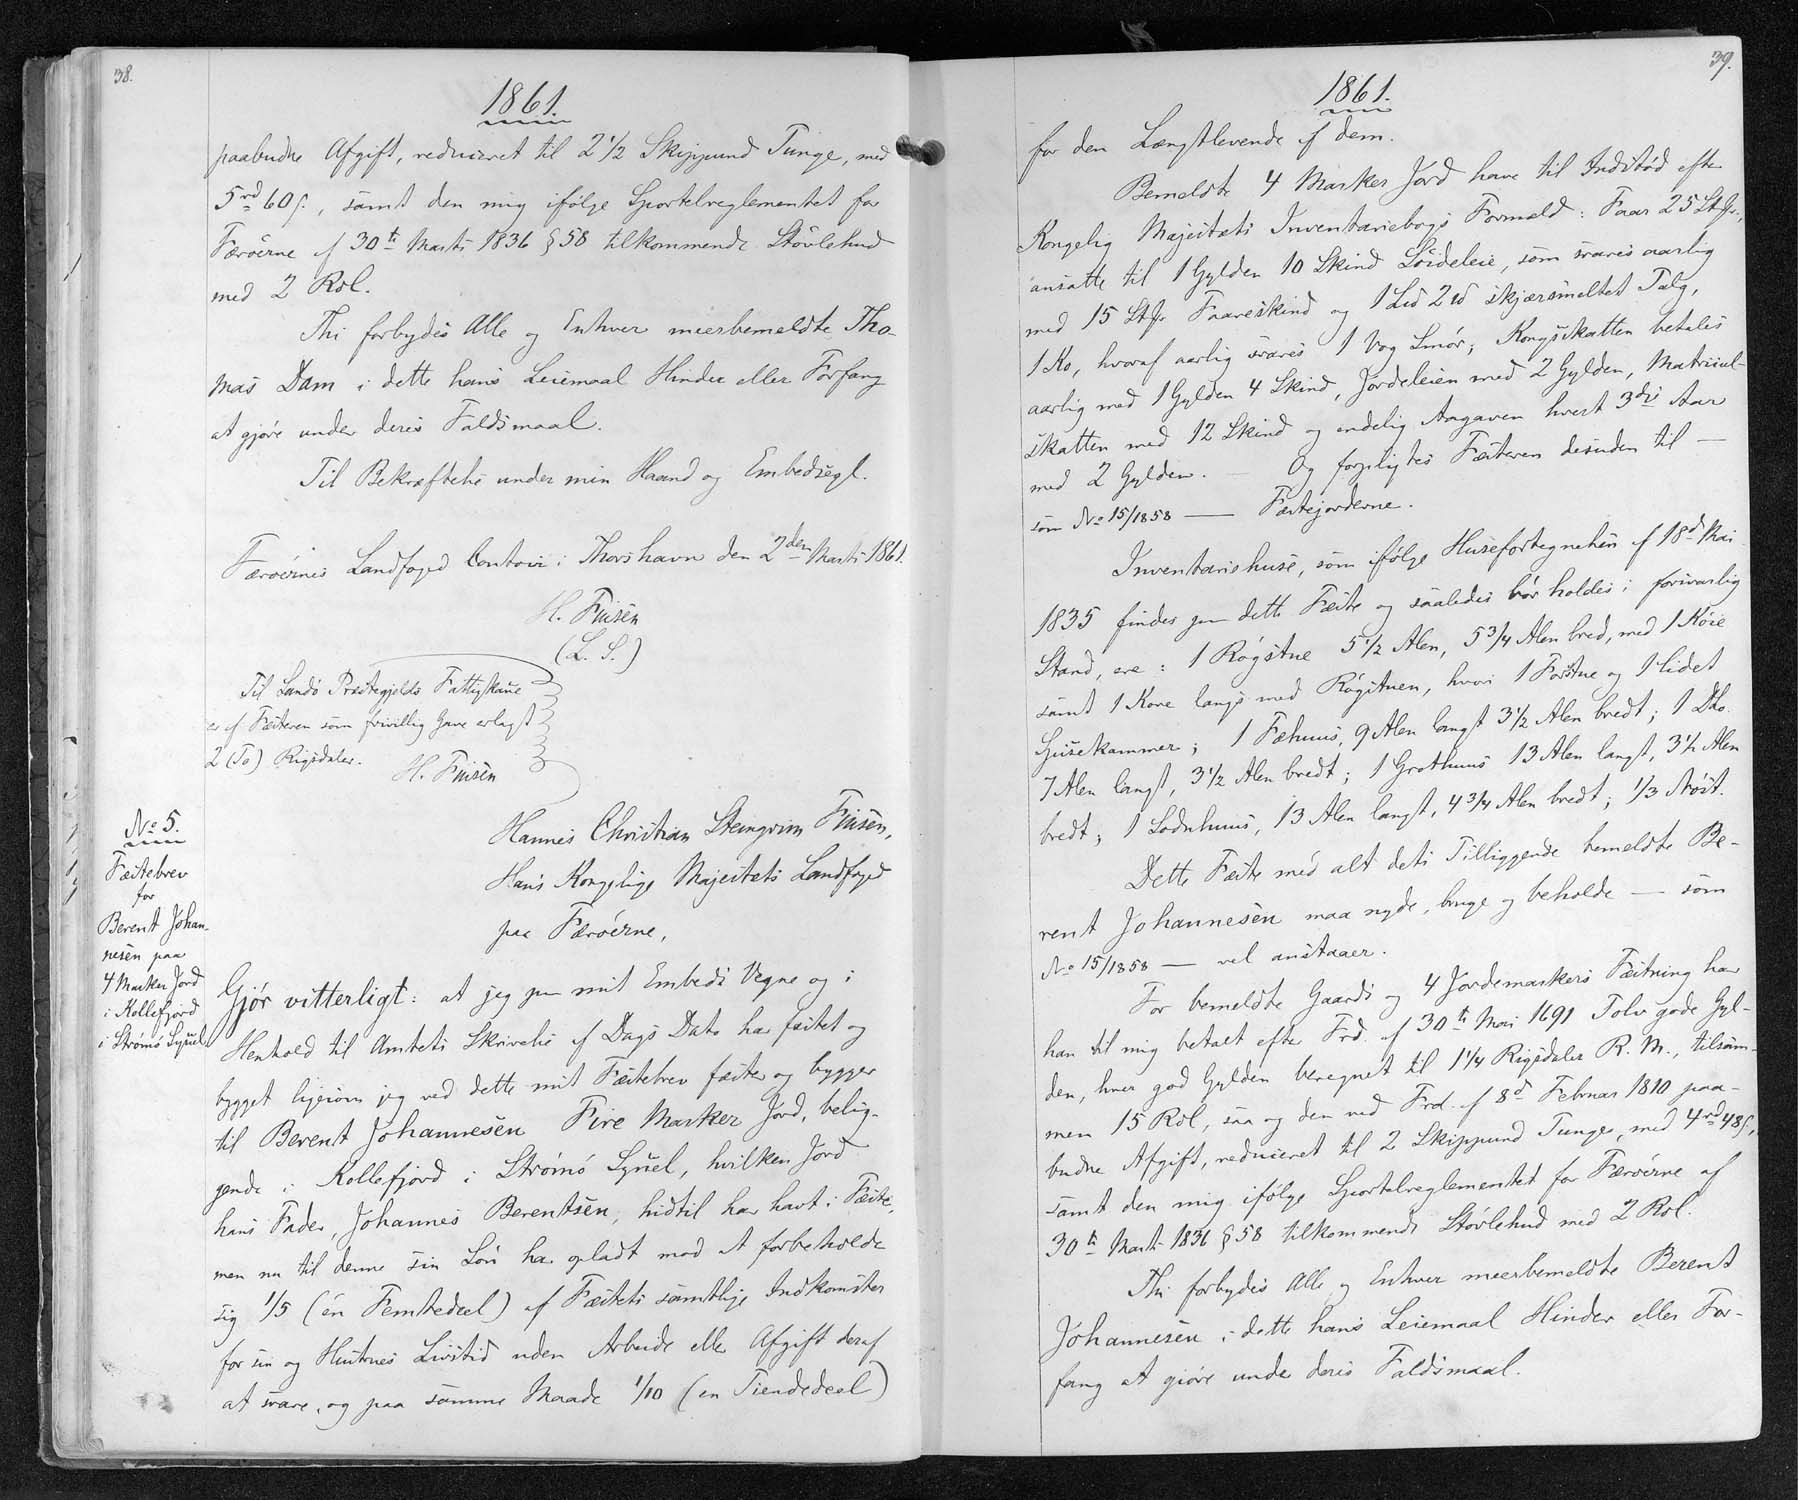 38.
1861.
paabudne Afgift, reduceret til 2 1/2 Skippund Tunge, med
5 rd 60 s., samt den mig ifølge Sportelreglementet for
Færøerne af 30te Marts 1836 § 58 tilkommende Støvlehud
med 2 Rdl.
Thi forbydes Alle og Enhver meerbemeldte Tho-
mas Dam i dette hans Leiemaal Hinder eller Forfang
at gjøre under deres Faldsmaal.
Til Bekræftelse under min Haand og Embedsegl.
Færøernes Landfoged Contoir i Thorshavn den 2den Marts 1861.
H. Finsen
(L. S.)
Til Sandø Præstegjelds Fattigkasse
er af Fæsteren som frivillig Gave erlagt
2 (To) Rigsdaler.
H. Finsen
No 5.
Fæstebrev
for
Berent Johan-
nesen paa
4 Marker Jord
i Kollefjord
i Strømø Syssel.
Hannes Christian Steingrim Finsen,
Hans Kongelige Majestets Landfoged
paa Færøerne,
Gjør vitterligt: at jeg paa mit Embeds Vegne og i
Henhold til Amtets Skrivelse af Dags Dato har fæstet og
bygget ligesom jeg ved dette mit Fæstebrev fæster og bygger
til Berent Johannesen Fire Marker Jord, belig-
gende i Kollefjord i Strømø Syssel, hvilken Jord
hans Fader, Johannes Berentsen, hidtil har havt i Fæste,
men nu til denne sin Søn har opladt mod at forbeholde
sig 1/5 (én Femtedeel) af Fæstets samtlige Indkomster
for sin og Hustrues Livstid uden Arbeide eller Afgift deraf
at svare, og paa samme Maade 1/10 (en Tiendedeel)
39.
1861.
for den Længstlevende af dem.
Bemeldte 4 Marker Jord have til Indstød efter
Kongelig Majestæts Inventariebogs Formeld: Faar 25 Stkr.,
ansatte til 1 Gylden 10 Skind Søideleie, som svares aarlig
med 15 Stkr Faareskind og 1 Lsd 2 td skjærsmeltet Talg,
1 Ko, hvoraf aarlig svares 1 Vog Smør; Kongsskatten betales
aarlig med 1 Gylden 4 Skind, Jordeleien med 2 Gylden, Matricul-
skatten med 12 Skind og endelig Angaven hvert 3die Aar
med 2 Gylden. Og forpligtes Fæsteren desuden til —
som No 15/1858 — Fæstejorderne.
Inventariehuse, som ifølge Husefortegnelsen af 18de Mai
1835 findes paa dette Fæste og saaledes bør holdes i forsvarlig
Stand, ere: 1 Røgstue 5 1/2 Alen, 5 3/4 Alen bred, med 1 Køie
samt 1 Kove langs med Røgstuen, hvori 1 Forstue og 1 lidet
Spisekammer; 1 Fæhuus, 9 Alen langt 3 1/2 Alen bredt; 1 Dto.
7 Alen langt, 3 1/2 Alen bredt; 1 Grothuus 13 Alen langt, 3 1/2 Alen
bredt; 1 Sodnhuus, 13 Alen langt, 4 3/4 Alen bredt; 1/3 Nøst.
Dette Fæste med alt dets Tilliggende bemeldte Be-
rent Johannesen maa nyde, bruge og beholde — som
No 15/1858 — vel anstaaer.
For bemeldte Gaards og 4 Jordemarkers Fæstning har
han til mig betalt efter Frd. af 30te Mai 1691 Tolv gode Gyl-
den, hver god Gylden beregnet til 1 1/4 Rigsdaler R. M., tilsam-
men 15 Rdl, saa og den ved Frd. af 8de Februar 1810 paa-
budne Afgift, reduceret til 2 Skippund Tunge, med 4 rd 48 s.,
samt den mig ifølge Sportelreglementet for Færøerne af
30te Marts 1836 § 58 tilkommende Støvlehud med 2 Rdl.
Thi forbydes Alle og Enhver meerbemeldte Berent
Johannesen i dette hans Leiemaal Hinder eller For-
fang at gjøre under deres Faldsmaal.